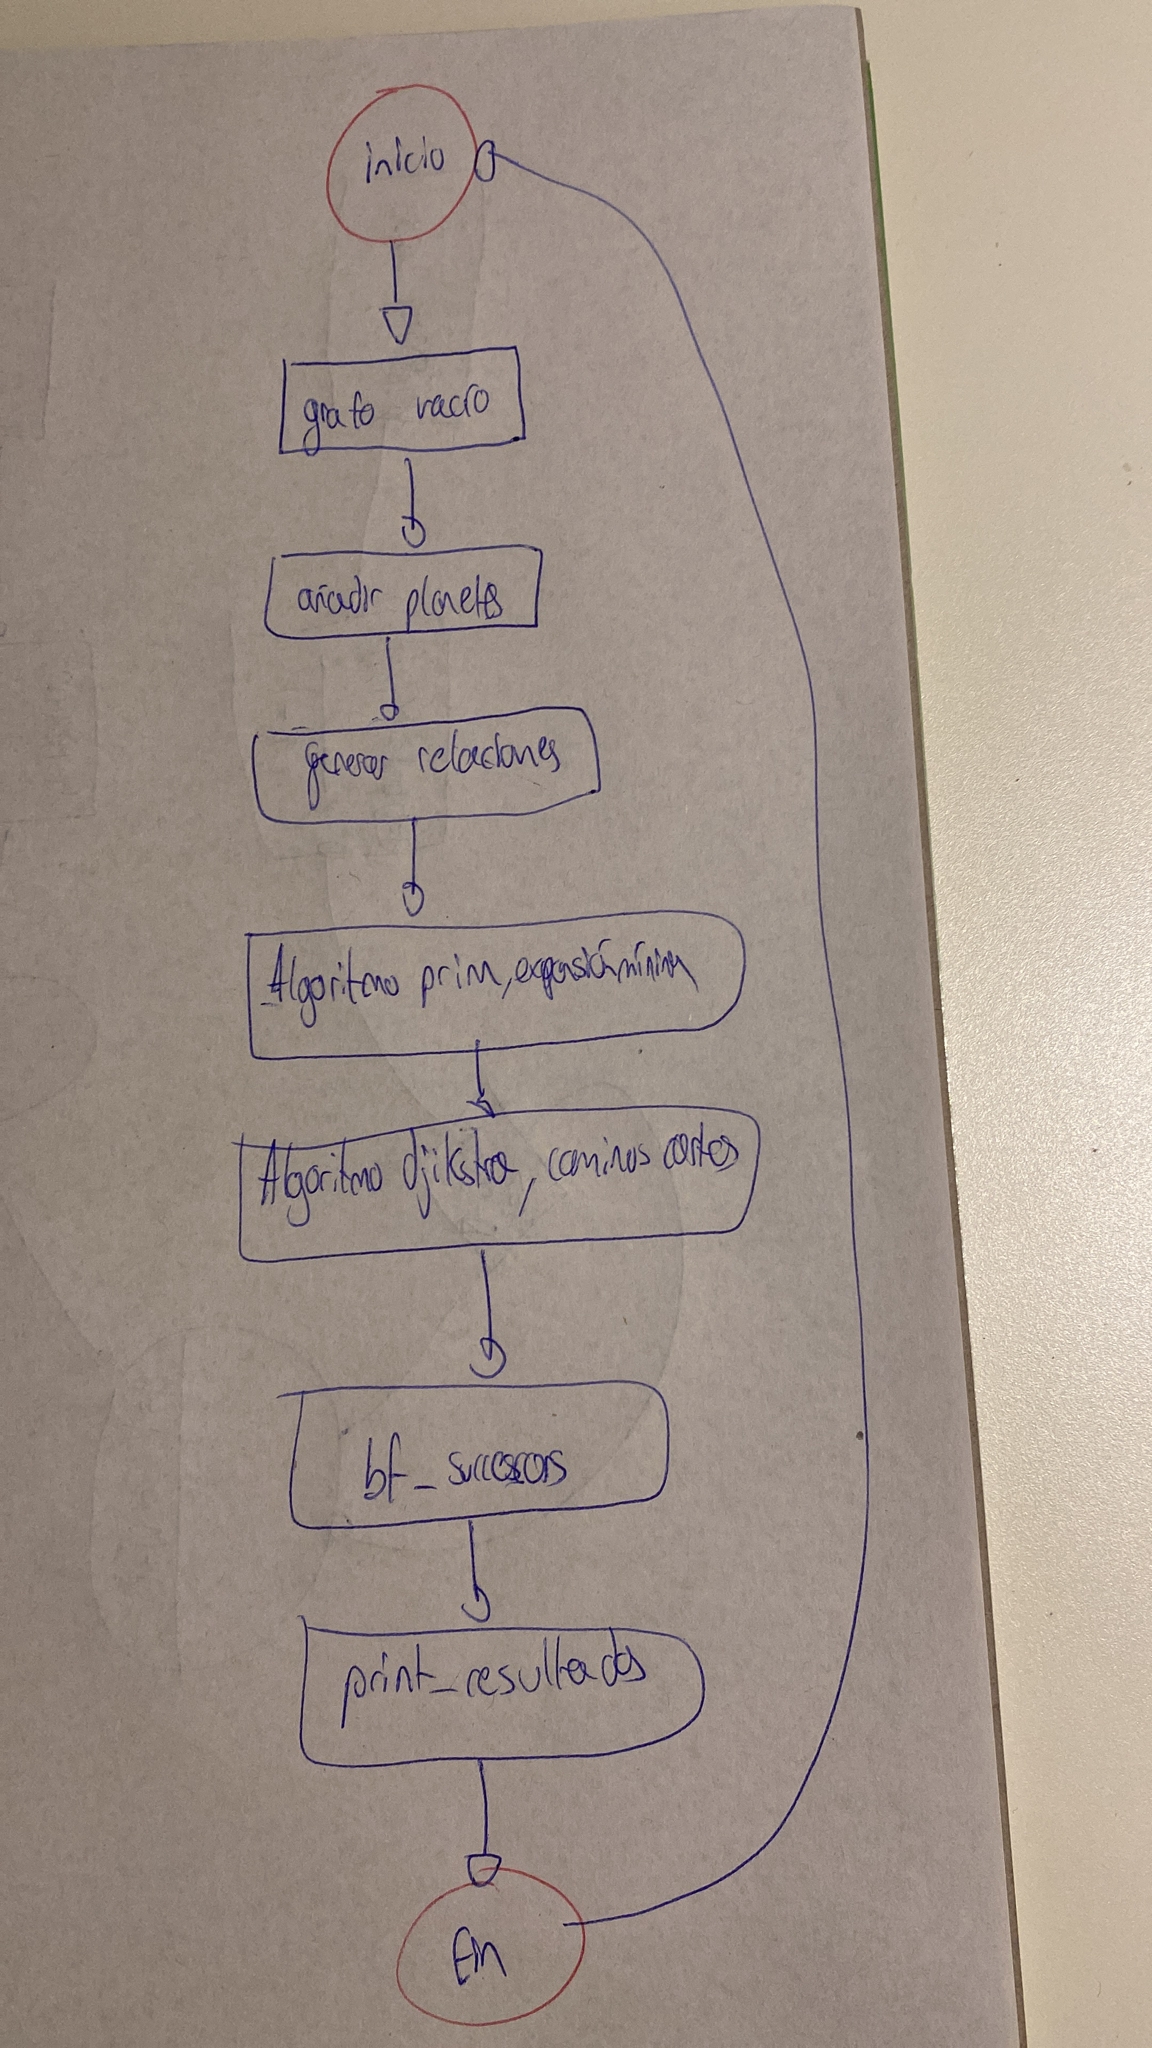 inicio
grafo vacío
añadir planetas
generar relaciones
Algoritmo prim, expansión mínima
Algoritmo djikstra, caminos cortos
bf_successors
print_resultados
Fin